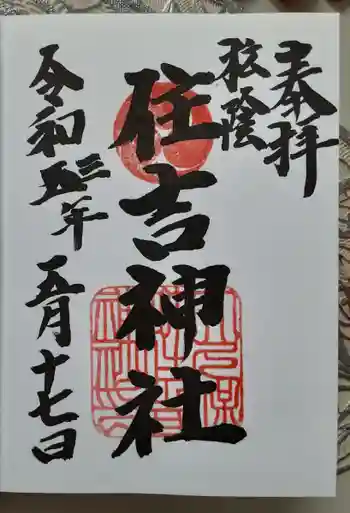 奉拝
陰
住吉神社
令和五三年五月十七日